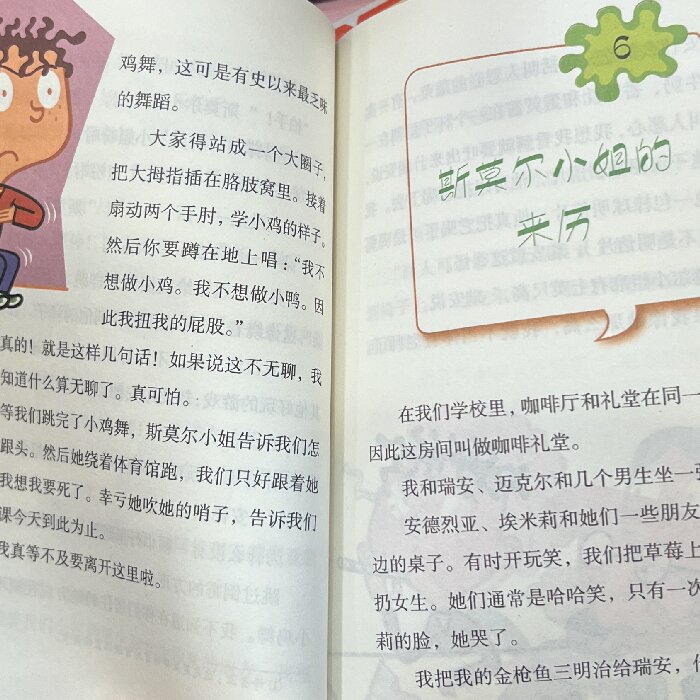 鸡舞，这可是有史以来最乏味
的舞蹈。
大家得站成一个大圈子，
把大拇指插在胳肢窝里。接着
扇动两个手肘，学小鸡的样子。
然后你要蹲在地上唱：“我不
想做小鸡。我不想做小鸭。因
此我扭我的屁股。”
真的！就是这样几句话！如果说这不无聊，我
知道什么算无聊了。真可怕。
等我们跳完了小鸡舞，斯莫尔小姐告诉我们怎
跟头。然后她绕着体育馆跑，我们只好跟着她
我想我要死了。幸亏她吹她的哨子，告诉我们
课今天到此为止。
我真等不及要离开这里啦。
6
斯莫尔小姐的
来历
在我们学校里，咖啡厅和礼堂在同一
因此这房间叫做咖啡礼堂。
我和瑞安、迈克尔和几个男生坐一
安德烈亚、埃米莉和她们一些朋友
边的桌子。有时开玩笑，我们把草莓上
扔女生。她们通常是哈哈笑，只有一次
莉的脸，她哭了。
我把我的金枪鱼三明治给瑞安，